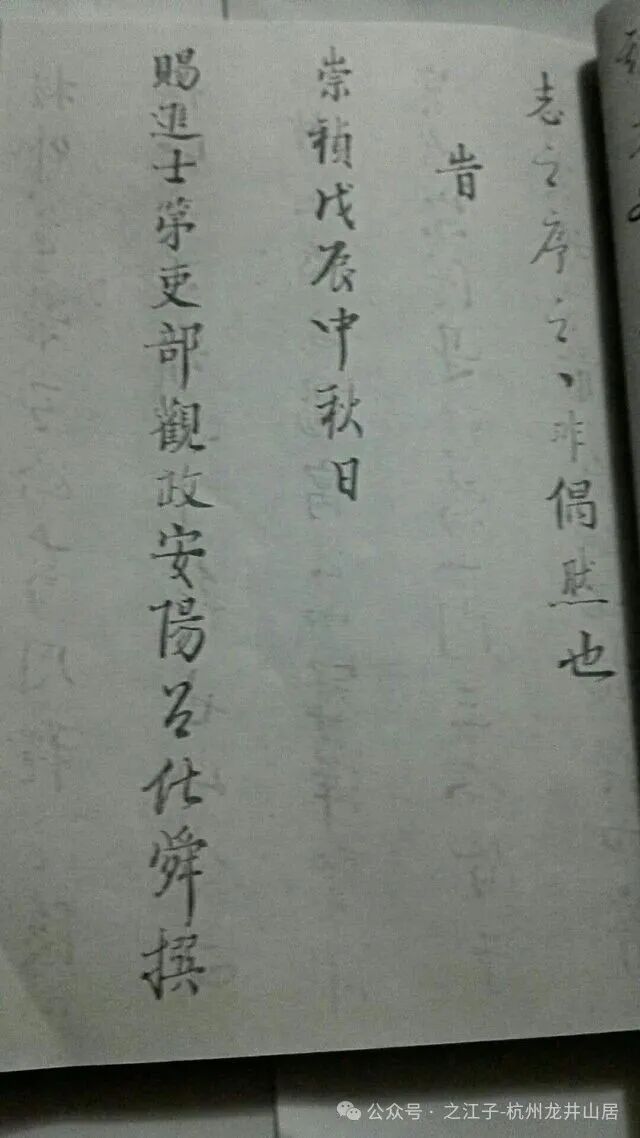 志之序之、非偶然也
旹
崇禎戊辰中秋日
賜進士第吏部觀政安陽吕仕舜撰
公众号 · 之江子-杭州龙井山居